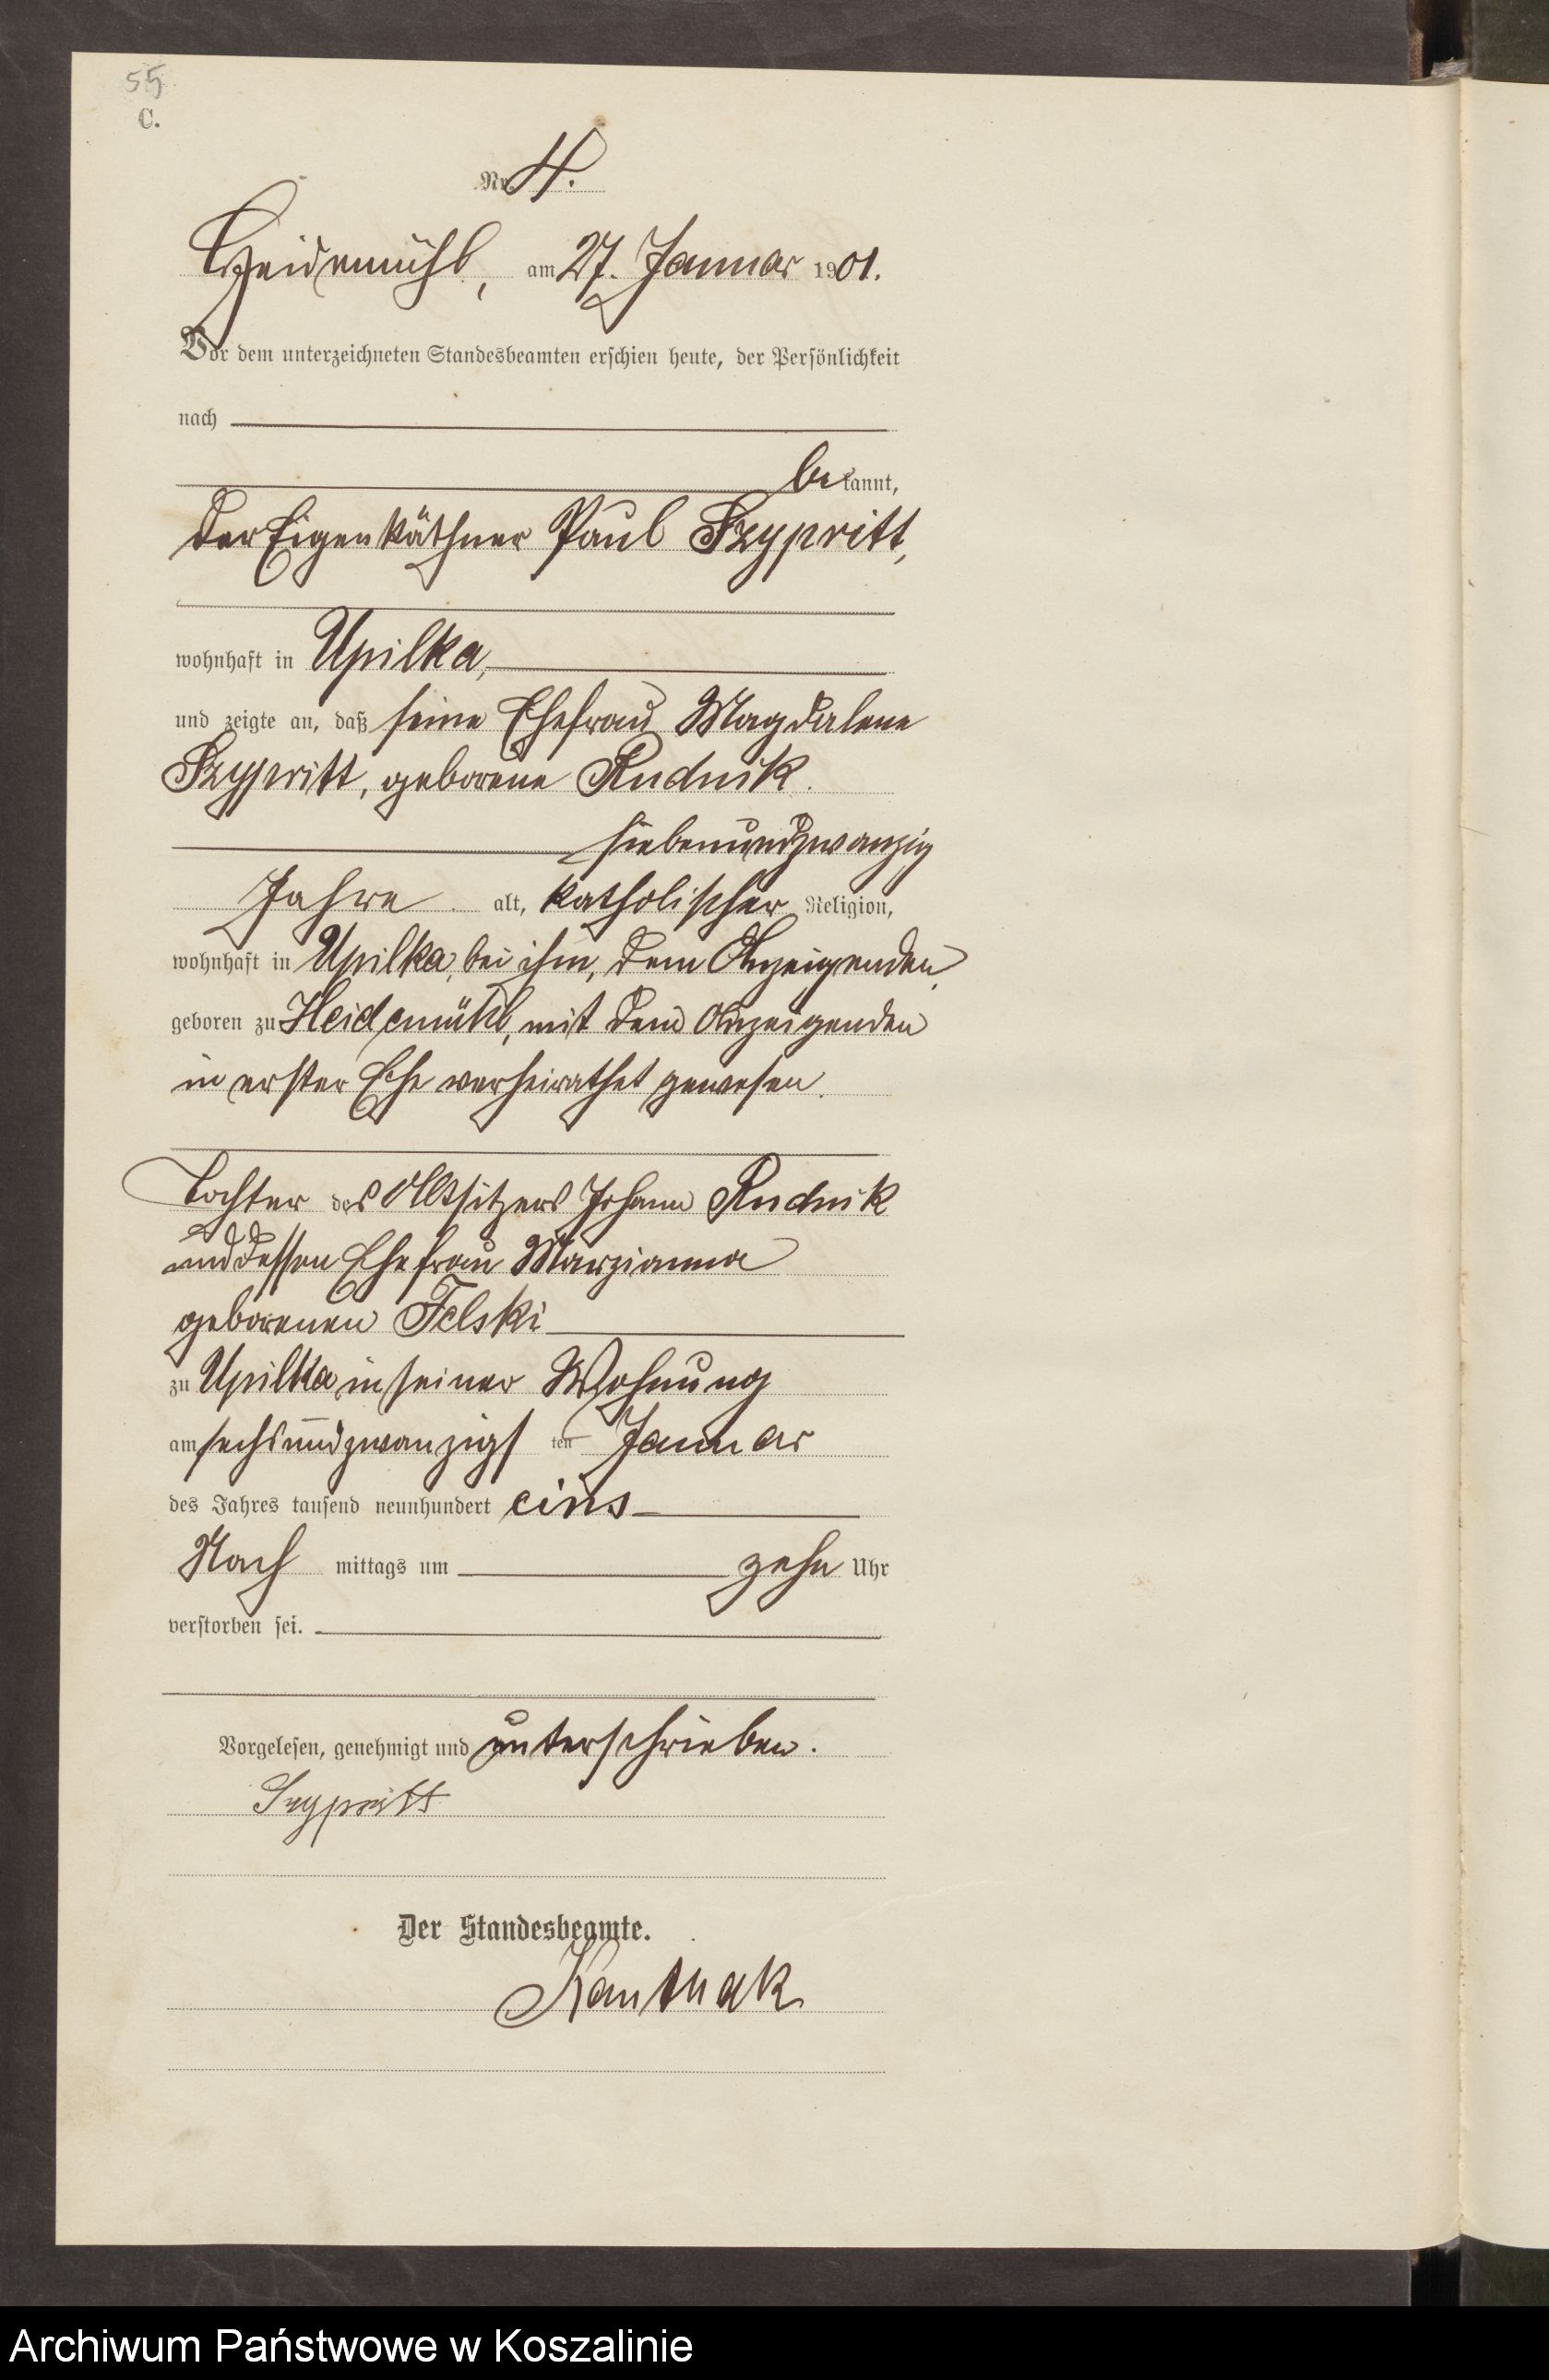 55
C.
Nr. 4.
Heidemühl, am 27. Januar 1901.
Vor dem unterzeichneten Standesbeamten erschien heute, der Persönlichkeit
nach
bekannt,
der Eigenkäthner Paul Szypritt,
wohnhaft in Upilka,
und zeigte an, daß seine Ehefrau Magdalene
Szypritt, geborene Rudnik.
siebenundzwanzig
Jahre alt, katholischer Religion,
wohnhaft in Upilka, bei ihm, dem Anzeigenden,
geboren zu Heidemühl, mit dem Anzeigenden
in erster Ehe verheirathet gewesen.
Tochter des Altsitzers Johann Rudnik
und dessen Ehefrau Marzianna
geborenen Felski
zu Upilka in seiner Wohnung
am sechsundzwanzigsten Januar
des Jahres tausend neunhundert eins
Nachmittags um zehn Uhr
verstorben sei.
Vorgelesen, genehmigt und unterschrieben.
Szypritt
Der Standesbeamte.
Kanthak
Archiwum Państwowe w Koszalinie